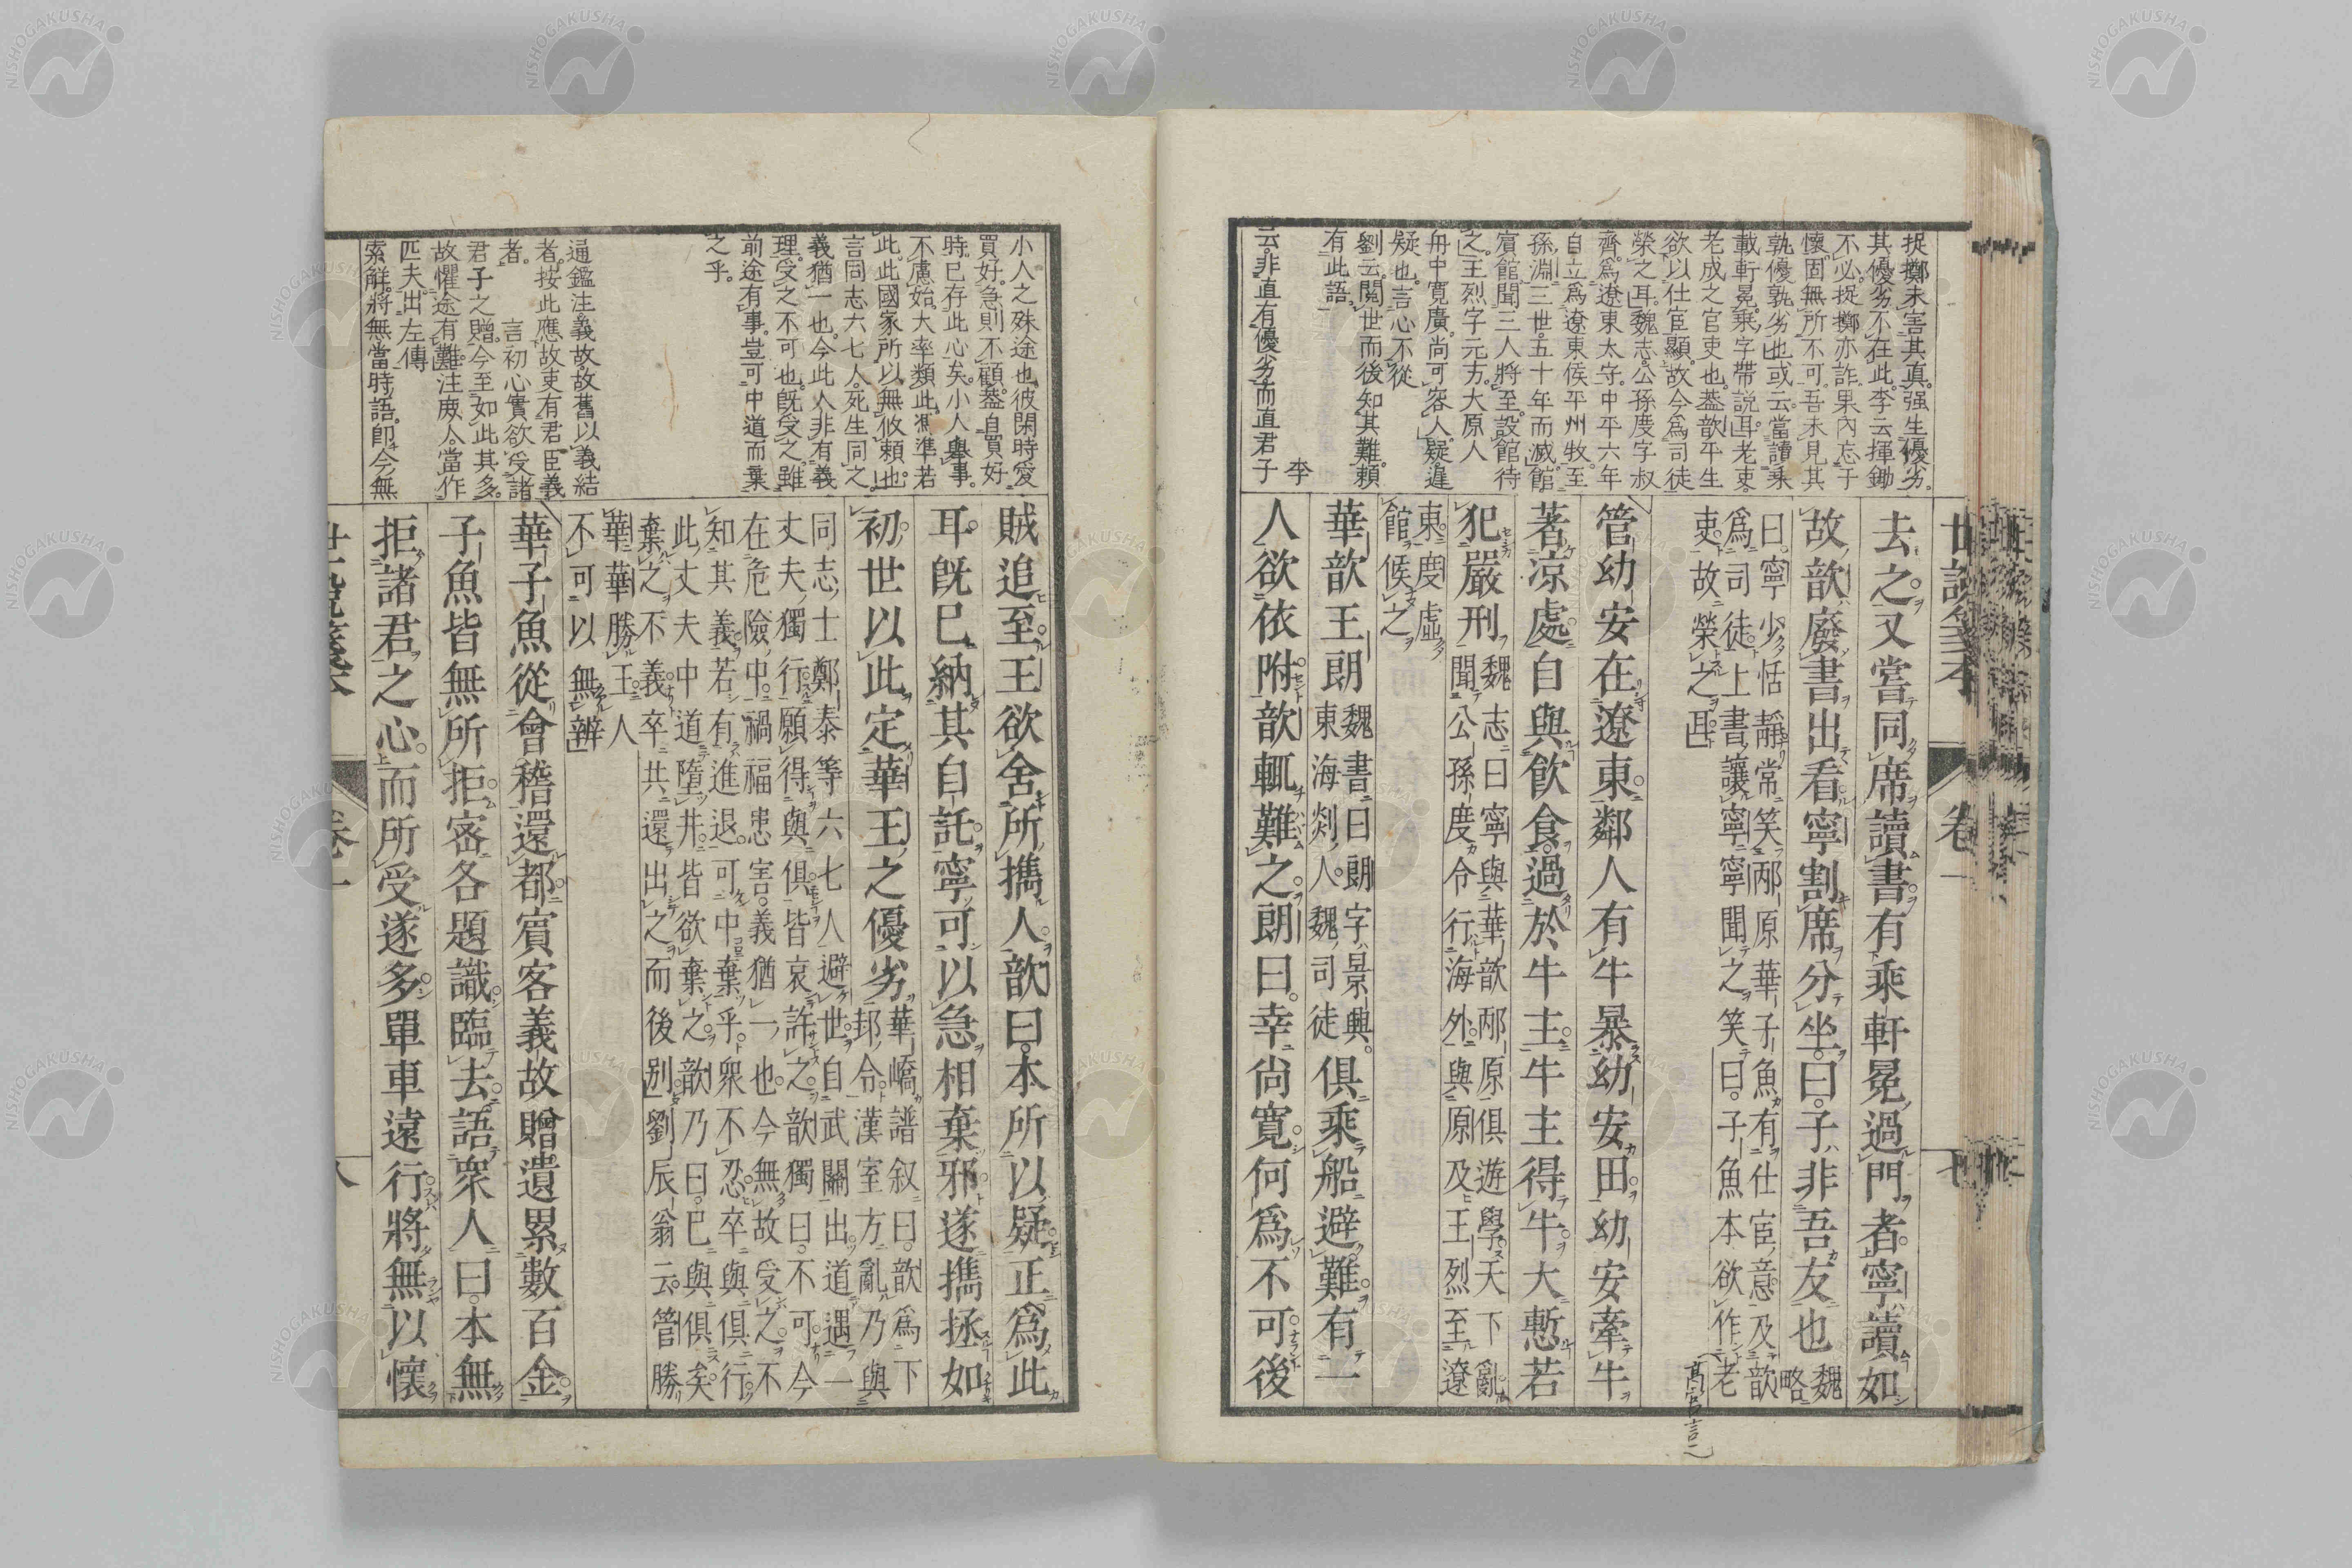 世説箋本
卷一
七
捉擲未害其真强生優劣
其優劣不在此李云揮鋤
不必捉擲亦詐果內忘于
懷固無所不可吾未見其
孰優孰劣也或云當讀乘
載軒冕乘字帶説耳老吏
老成之官吏也蓋歆平生
欲以仕宦顯故今爲司徒
榮之耳魏志公孫度字叔
齊爲遼東太守中平六年
自立爲遼東侯平州牧至
孫淵三世五十年而滅館
賓館聞三人將至設館待
之王烈字元方大原人
舟中寬廣尚可容人疑違
疑也言心不從
劉云閲世而後知其難頼
有此語
李
云非直有優劣而直君子
去之又嘗同席讀書有乘軒冕過門者寧讀如
故歆廢書出看寧割席分坐曰子非吾友也魏略
曰寧少恬靜常笑邴原華子魚有仕宦意及歆
爲司徒上書讓寧寧聞之笑曰子魚本欲作老
吏故榮之耳
管幼安在遼東鄰人有牛暴幼安田幼安牽牛
著涼處自與飲食過於牛主牛主得牛大慙若
犯嚴刑魏志曰寧與華歆邴原俱遊學天下亂
聞公孫度令行海外與原及王烈至遼
東度虛
館候之
華歆王朗魏書曰朗字景興
東海剡人魏司徒俱乘船避難有一
人欲依附歆輒難之朗曰幸尚寬何爲不可後
小人之殊途也彼閑時愛
買好急則不顧蓋自買好
時已存此心矣小人舉事
不慮始大率類此馮準若
此此國家所以無攸頼也
言同志六七人死生同之
義猶一也今此人非有義
理受之不可也既受之雖
前途有事豈可中道而棄
之乎
通鑑注義故故舊以義結
者按此應故吏有君臣義
者　言初心實欲受諸
君子之贈今至如此其多
故懼途有難注庾人當作
匹夫出左傳
索解將無當時語即今無
賊追至王欲舍所攜人歆曰本所以疑正爲此
耳既已納其自託寧可以急相棄邪遂攜拯如
初世以此定華王之優劣華嶠譜叙曰歆爲下
邽令漢室方亂乃與
同志士鄭泰等六七人避世自武關出道遇一
丈夫獨行願得與俱皆哀許之歆獨曰不可今
在危險中禍福患害義猶一也今無故受之不
知其義若有進退可中棄乎衆不忍卒與俱行
此丈夫中道墮井皆欲棄之歆乃曰已與俱矣
棄之不義卒共還出之而後别劉辰翁云管勝
華華勝王人
不可以無辨
華子魚從會稽還都賓客義故贈遺累數百金
子魚皆無所拒密各題識臨去語衆人曰本無
拒諸君之心而所受遂多單車遠行將無以懷
世説箋本
卷一
八